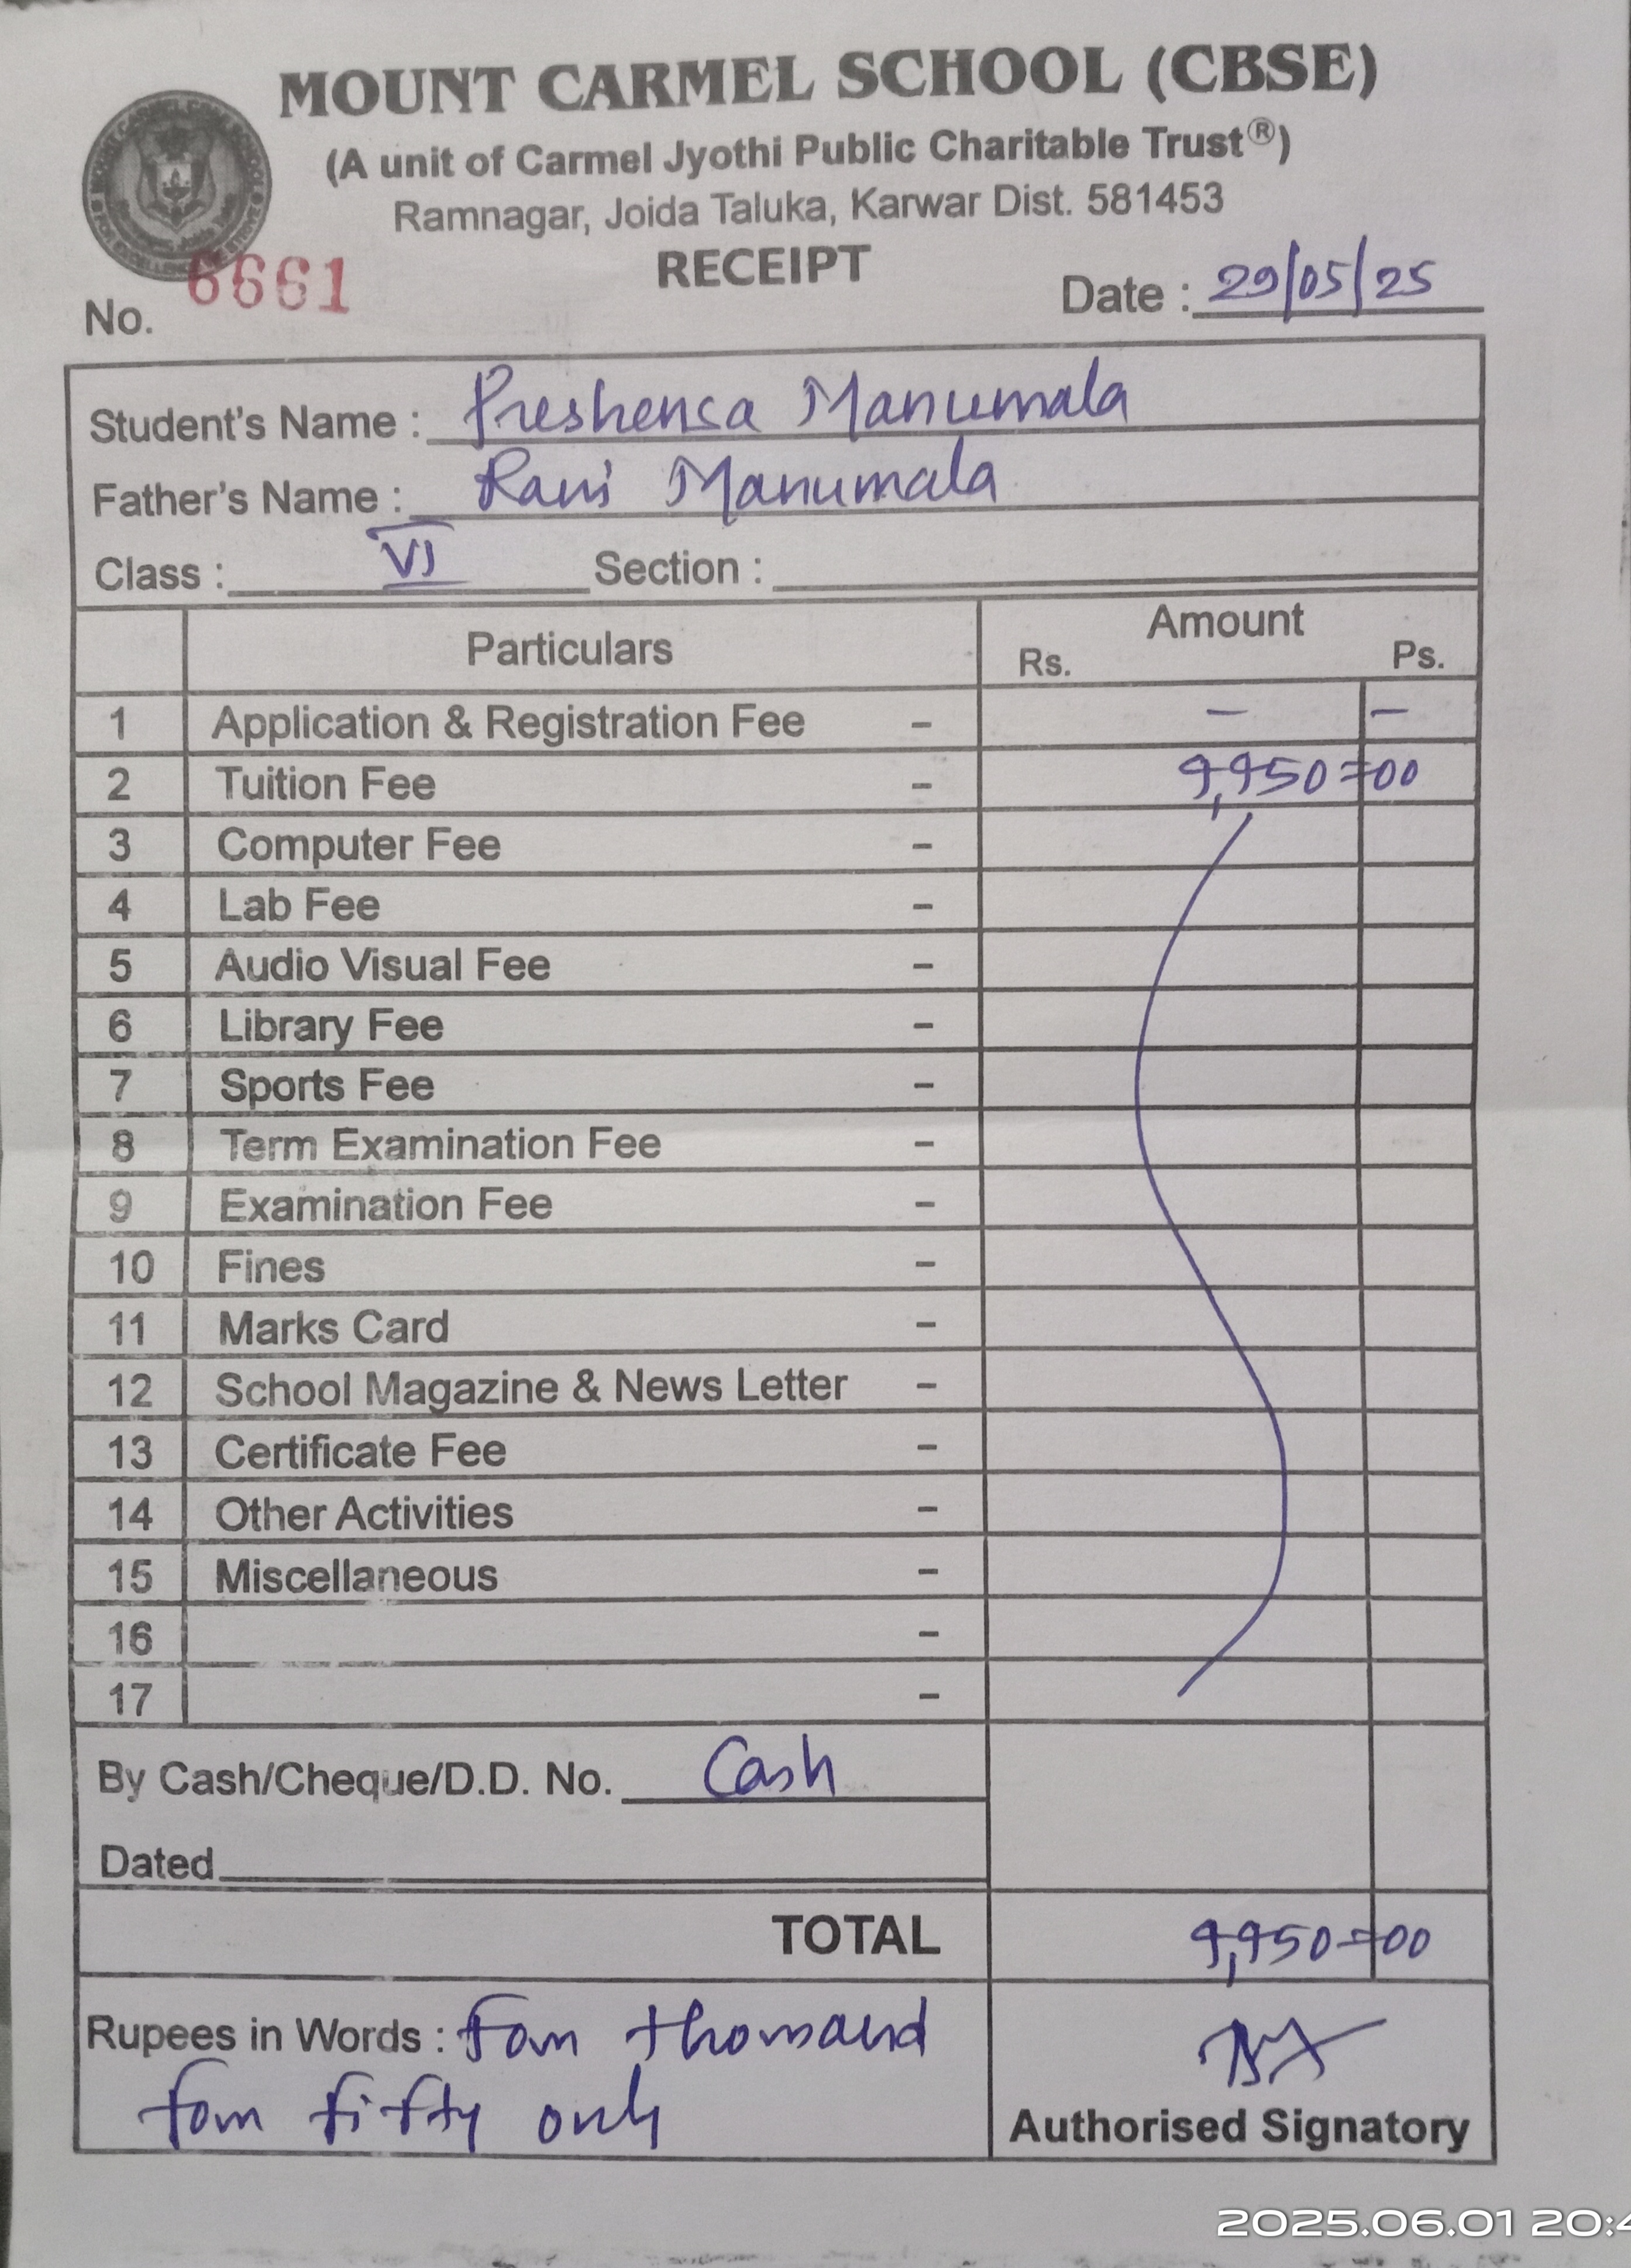 MOUNT CARMEL SCHOOL (CBSE)
(A unit of Carmel Jyothi Public Charitable Trust®)
Ramnagar, Joida Taluka, Karwar Dist. 581453
RECEIPT
No. 6661 Date : 29/05/25
Student's Name : Preshensa Manumala
Father's Name : Ravi Manumala
Class : VI Section :
Particulars Amount
Rs. Ps.
1 Application & Registration Fee - - -
2 Tuition Fee - 9,950=00
3 Computer Fee -
4 Lab Fee -
5 Audio Visual Fee -
6 Library Fee -
7 Sports Fee -
8 Term Examination Fee -
9 Examination Fee -
10 Fines -
11 Marks Card -
12 School Magazine & News Letter -
13 Certificate Fee -
14 Other Activities -
15 Miscellaneous -
16 -
17 -
By Cash/Cheque/D.D. No. Cash
Dated
TOTAL 9,950=00
Rupees in Words : thousand
fifty only
Authorised Signatory
2025.06.01 20:4